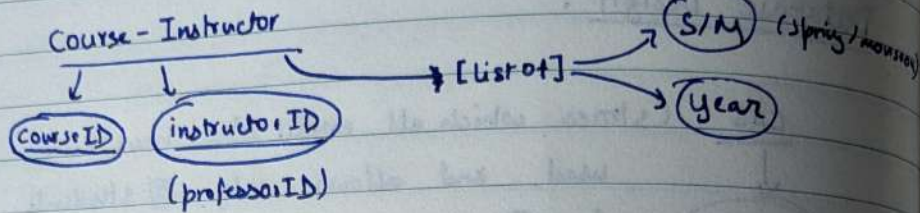 Course - Instructor
[List of]
S/M (Spring / monsoon)
Year
CourseID
instructorID
(professorID)